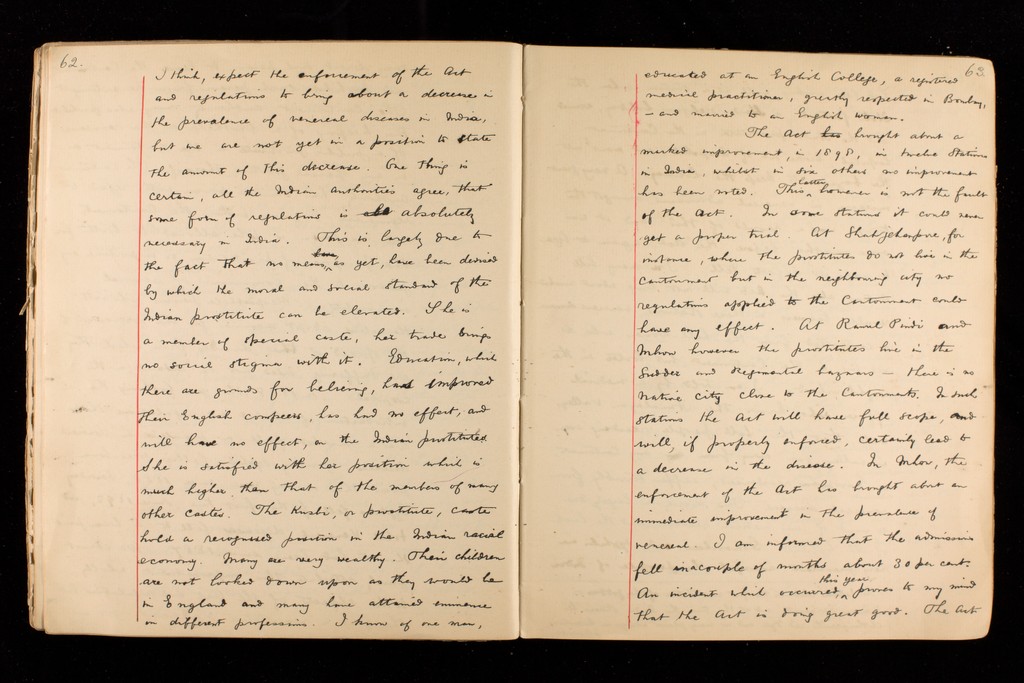 62.
I think, expect the enforcement of the Act
and regulations to bring about a decrease in
the prevalence of venereal diseases in India,
but we are not yet in a position to state
the amount of this decrease. One thing is
certain, all the Indian authorities agree, that
some form of regulations is absolutely
necessary in India. This is largely due to
the fact that no means, as yet, have been devised
by which the moral and social standard of the
Indian prostitute can be elevated. She is
a member of special caste, her trade brings
no social stigma with it. Education, which
there are grounds for believing, has improved
their English compeers, has had no effect, and
will have no effect, on the Indian prostitute
She is satisfied with her position which is
much higher than that of the members of many
other castes. The Kusbi, or prostitute, caste
hold a recognised position in the Indian racial
economy. Many are very wealthy. Their children
are not looked down upon as they would be
in England and many have attained eminence
in different professions. I know of one man,
63.
educated at an English College, a registered
medical practitioner, greatly respected in Bombay,
- and married to an English woman.
The Act has brought about a
marked improvement, in 1898, in twelve stations
in India, whilst in six others no improvement
has been noted. This latter however is not the fault
of the Act. In some stations it could never
get a proper trial. At Shahjehanpore, for
instance, where the prostitutes do not live in the
Cantonment but in the neighbouring city no
regulations applied to the Cantonment could
have any effect. At Rawal Pindi and
Mhow however the prostitutes live in the
Sudder and Regimental bazaars - there is no
native city close to the Cantonments. In such
stations the Act will have full scope, and
will, if properly enforced, certainly lead to
a decrease in the disease. In Mhow, the
enforcement of the Act has brought about an
immediate improvement in the prevalence of
venereal. I am informed that the admissions
fell in a couple of months about 30 per cent.
An incident which occurred this year proves to my mind
that the Act is doing great good. The Act